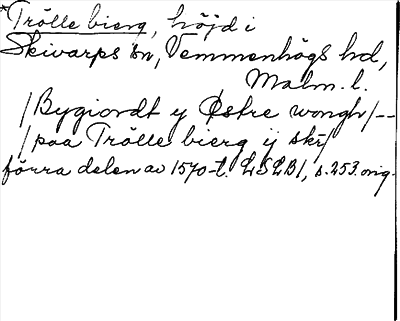 *Trölle bierg, höjd i
Skivarps sn, Vemmenhögs hd,
Malm. l.
/Bygiordt y Østre wongh/--
/paa Trölle bierg ij skr/
förra delen av 1570-t. LSLB1, s. 253. orig.